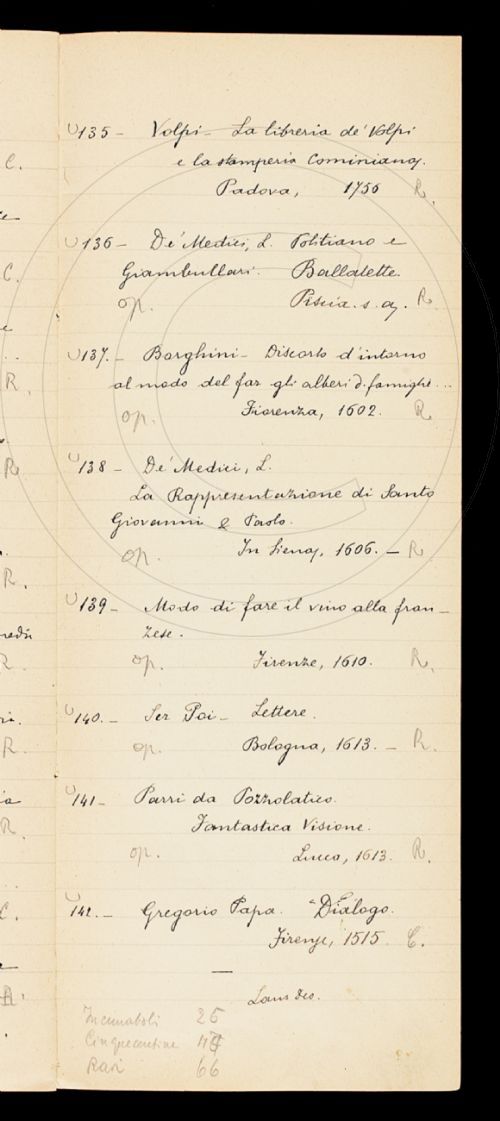 135 - Volpi - La libreria de' Volpi
e la stamperia Cominiana.
Padova, 1756 R.
136 - De' Medici, L. Politiano e
Giambullari. Ballatette.
op. Pescia. s. a. R.
137. - Borghini - Discorso d'intorno
al modo del far gli alberi d. famighi...
op. Fiorenza, 1602. R.
138 - De' Medici, L.
La Rappresentazione di Santo
Giovanni e Paolo.
op. In Siena, 1606. - R
139 - Modo di fare il vino alla fran-
zese.
op. Firenze, 1610. R.
140. - Ser Poi - Lettere.
op. Bologna, 1613. - R.
141 - Parri da Pozzolatico.
Fantastica Visione.
op. Lucca, 1613. R.
142. - Gregorio Papa. "Dialogo.
Firenze, 1515. C.
Laus deo.
Incunaboli 25
Cinquecentine
Rari 66